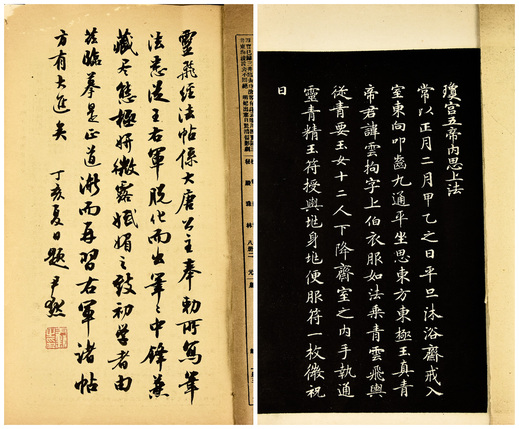 瓊宮五帝內思上法
常以正月二月甲乙之日平旦沐浴齋戒入
室東向叩齒九通平坐思東方東極玉真青
帝君諱雲拘字上伯衣服如法乘青雲飛輿
從青要玉女十二人下降齋室之內手執通
靈青精玉符授與兆身兆便服符一枚微祝
曰
靈飛經法帖係大唐公主奉勅所寫筆
法悉從王右軍脫化而出筆〻中鋒兼
藏尽態極妍微露嫵媚之致初學者由
茲臨摹是正道漸而再習右軍諸帖
方有大進矣
丁亥夏日題尹默